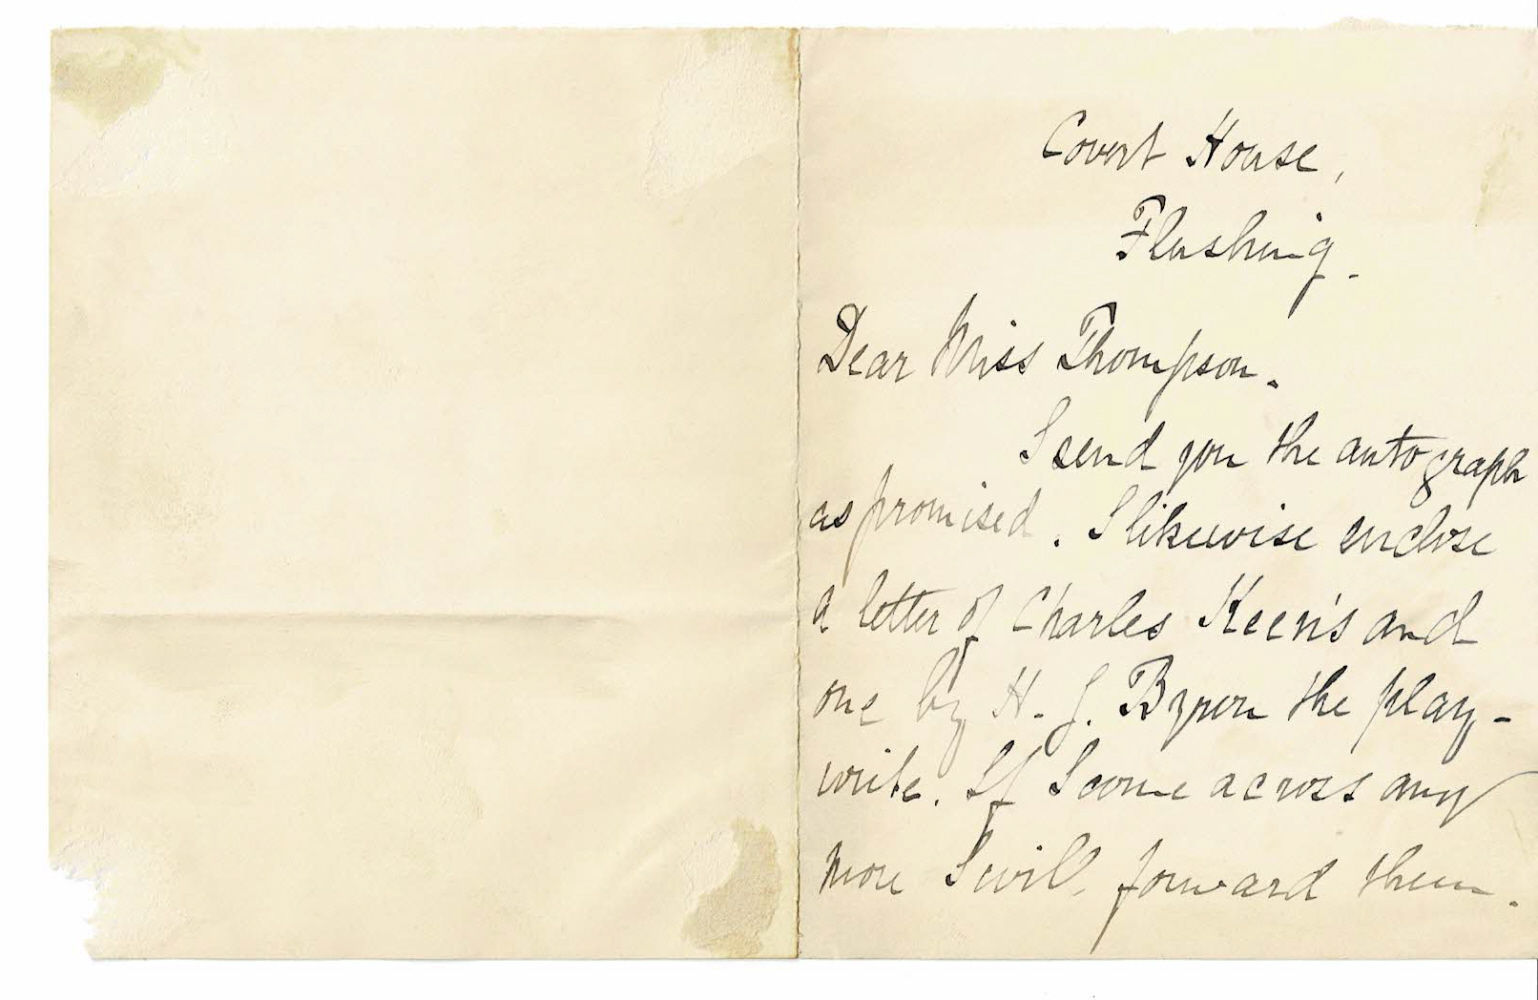 Covert House,
Flushing.
Dear Miss Thompson.
I send you the autograph
as promised. I likewise enclose
a letter of Charles Keen's and
one by H. J. Byron the play-
write. If I come across any
more I will forward them.